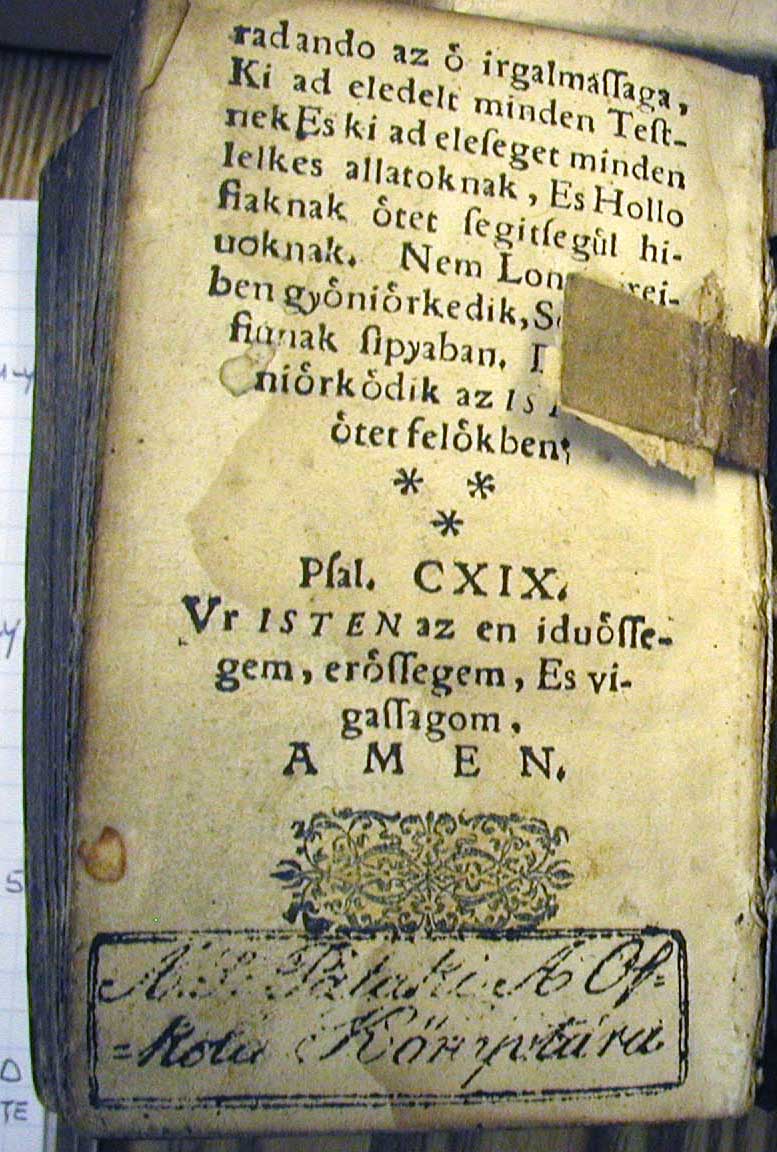 radando az ő irgalmaſſaga,
Ki ad eledelt minden Teſt-
nek Es ki ad eleſeget minden
lelkes allatoknak, Es Hollo
fiaknak ötet ſegitſegůl hi-
uoknak. Nem Lon rei-
ben gyöniörkedik,
fiunak ſipyaban.
niörködik az
ötet felökben;
* *
*
Pſal. CXIX.
Vr ISTEN az en iduöſſe-
gem, eröſſegem, Es vi-
gaſſagom.
A M E N.
A Pataki A Oſ-
=kola Könyvtára